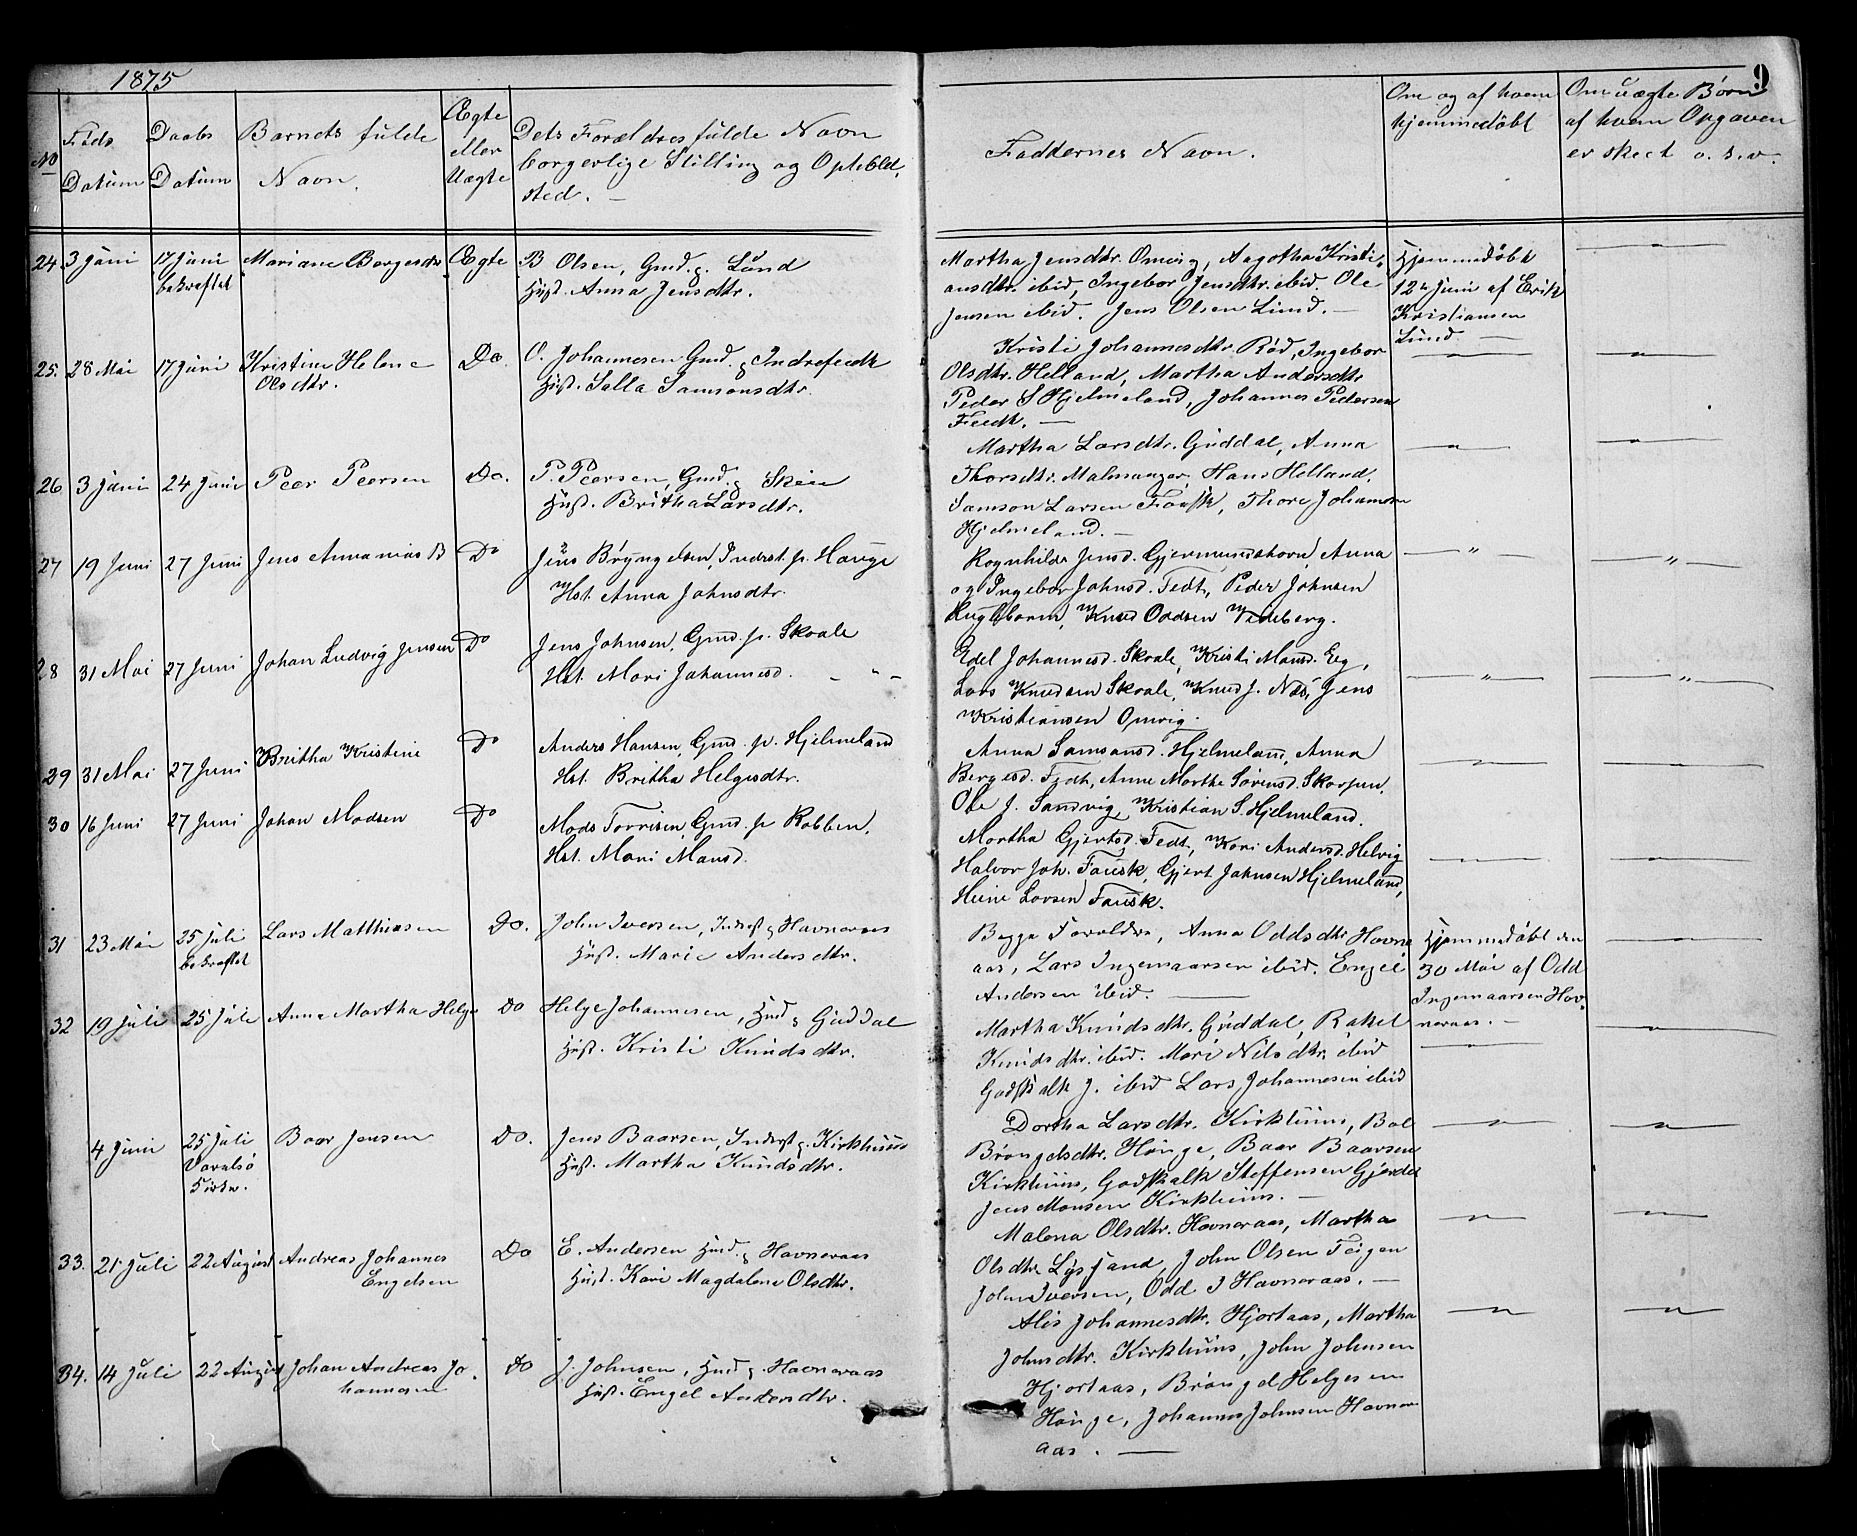 1875
9
No
Føds Datum
Daabs Datum
Barnets fulde Navn.
Ægte eller Uægte
Dets Forældres fulde Navn
borgerlige Stilling og Opholds
sted. —
Faddernes Navn.
Om og af hvem
hjemmedøbt
Om uægte Børn
af hvem Opgaven
er skeet o. s. v.
24. 3 Juni 17 Juni Mariane Borgesdtr Ægte B Olsen, Gmd. p. Lund
bekræftet Hust. Anna Jensdtr.
Martha Jensdtr. Omvig, Aagotha Kristi-
ansdtr. ibid, Ingebor Jensdtr. ibid. Ole
Jensen ibid. Jens Olsen Lund. —
Hjemmedøbt
12te Juni af Erik
Kristiansen
Lund. —
25. 28 Mai 17 Juni Kristine Helene Do. O. Johannesen Gmd. p Indrefedt
Olsdtr. Hust. Salla Samsonsdtr.
Kristi Johannesdtr. Rød, Ingebor
Olsdtr. Helland, Martha Andersdtr
Peder S Hjelmeland, Johannes Pedersen
Feedt. —
26 3 Juni 24 Juni Peer Peersen Do. P. Peersen, Gmd. p Skeie
Hust. Britha Larsdtr.
Martha Larsdtr. Guddal, Anna
Thorsdtr. Malmanger, Hans Helland,
Samson Larsen Fausk, Thore Johannesen
Hjelmeland. —
27 19 Juni 27 Juni Jens Annanias B Do Jens Bryngelsen, Inderst. p. Hauge
Hst. Anna Johnsdtr.
Ragnhilda Jensd. Gjermundshavn, Anna
og Ingebor Johnsd. Fedt, Peder Johnsen
Knud Oddsen Vedeberg.
28 31 Mai 27 Juni Johan Ludvig Jensen Do Jens Johnsen, Gmd. p. Skaale
Hst. Mari Johannesd.
Edel Johannesd. Skaale, Kristi Monsd. Eg,
Lars Knudsen Skaale, Knud J. Næs, Jens
Kristiansen Omvig.
29 31 Mai 27 Juni Britha Kristine Do Anders Hansen, Gmd. p. Hjelmeland
Hst. Britha Helgesdtr.
Anna Samsonsd. Hjelmeland, Anna
Bergesd. Fedt, Anne Marthe Sørensd. Skorpen,
Ole J. Sandvig, Kristian S. Hjelmeland.
30 16 Juni 27 Juni Johan Madsen Do Mads Torrisen, Gmd. p Rabben,
Hst. Mari Mansd.
Martha Gjertsd. Fedt, Kari Andersd. Helvig
Halvor Joh. Fausk, Gjert Johnsen Hjelmeland,
Heine Larsen Fausk.
31 23 Mai 25 Juli Lars Matthiasen Do. John Iversen, Inderst p Havneraas
bekræftet Hust. Marie Andersdtr.
Begge Forældre, Anna Oddsdtr Havne
aas, Lars Ingemaarsen ibid. Engel
Andersen ibid. —
Hjemmedøbt den
30 Mai af Odd
Ingemaarsen Hav-
neraas. —
32 19 Juli 25 Juli Anna Martha Helge Do Helge Johannesen, Hmd p Guddal
Hust. Kristi Knudsdtr.
Martha Knudsdtr. Guddal, Rakel
Knudsdtr. ibid. Mari Nilsdtr. ibid
Godskalk J. ibid Lars Johannesen ibid
4 Juni 25 Juli Baar Jensen Do. Jens Baarsen, Inderst p. Kirkhuus
Varalsö Hust. Martha Knudsdtr.
Kirke.
Dortha Larsdtr. Kirkhuus, Bol
Bröngelsdtr. Hauge, Baar Baarsen
Kirkhuus, Godskalk Steffensen Gjerde
Jens Monsen Kirkhuus. —
33. 21 Juli 22 August Andreas Johannes Do E. Andersen Hmd. p Havneraas
Engelsen Hust. Kari Magdalena Olsdtr.
Malena Olsdtr. Havneraas, Martha
Olsdtr. Lyssand, John Olsen Teigen
John Iversen, Odd I Havneraas. —
34. 14 Juli 22 August Johan Andreas Jo Do J. Johnsen, Hmd p Havneraas
hannesen Hust. Engel Andersdtr.
Alis Johannesdtr. Hjortaas, Martha
Johnsdtr. Kirkhuus, John Johnsen
Hjortaas, Bröngel Helgesen
Hauge, Johannes Johnsen Havner
aas. —